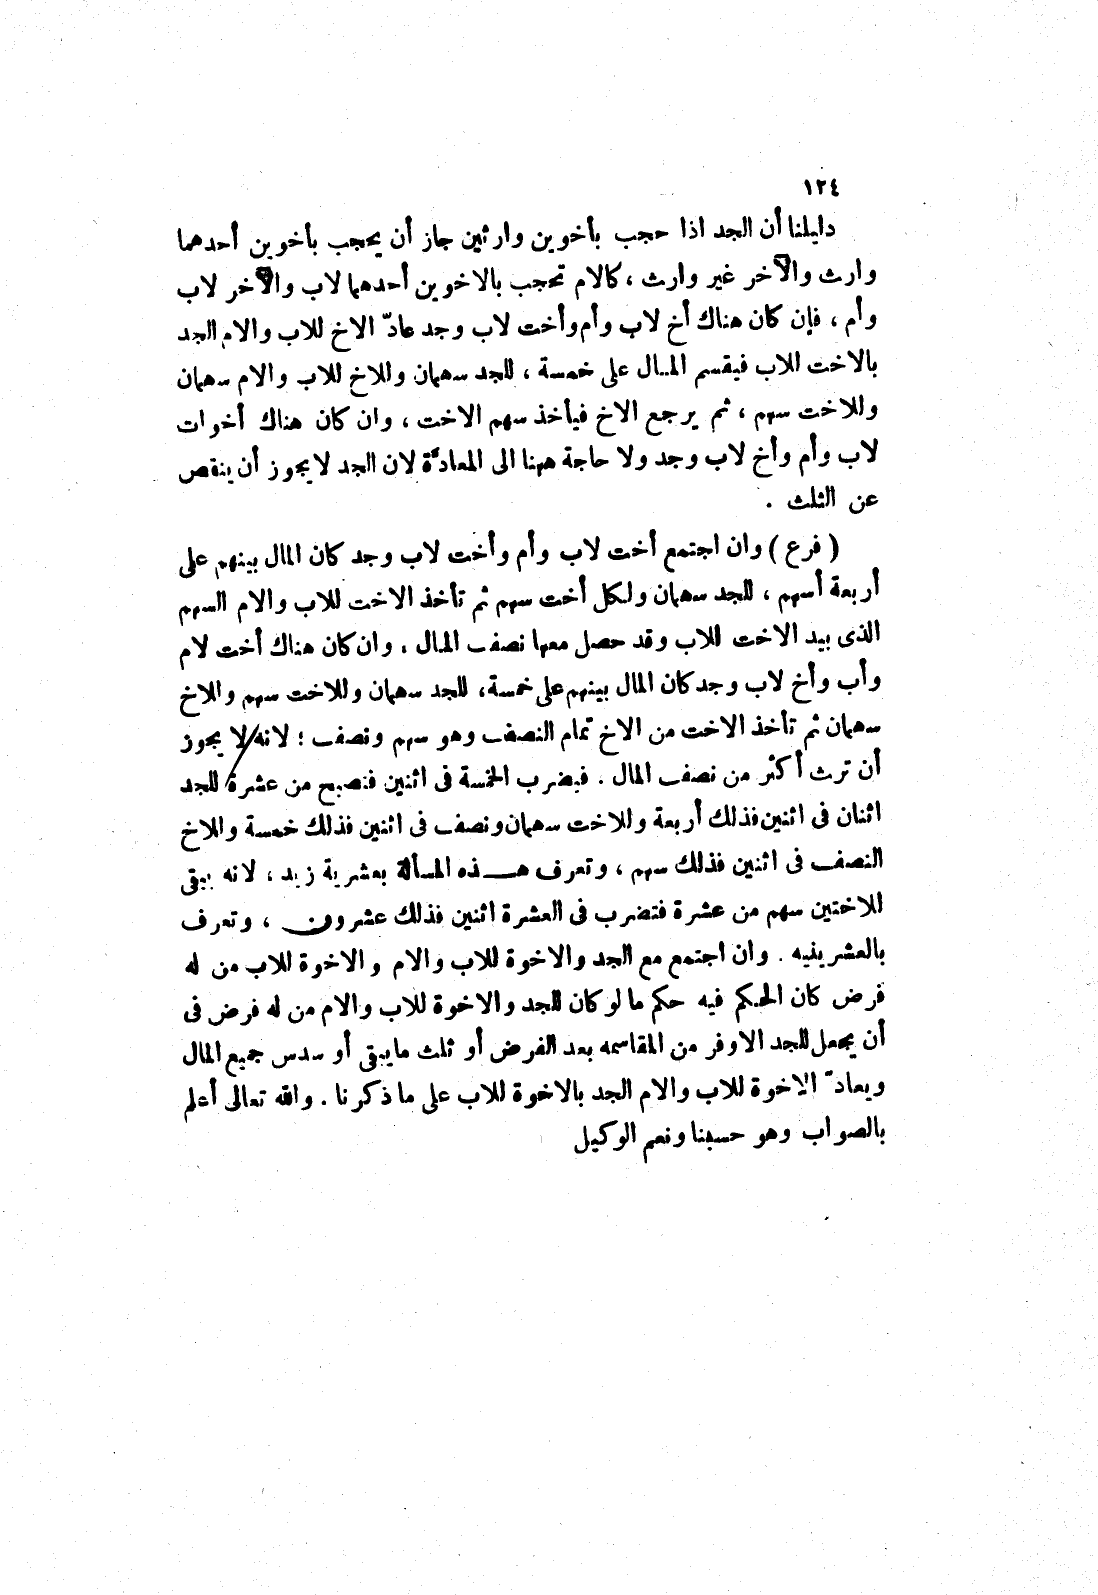 ١٢٤
دليلنا أن الجد اذا حجب بأخوين وارثين جاز أن يحجب بأخوين أحدهما
وارث والآخر غير وارث ، كالام تحجب بالاخوين أحدهما لاب والآخر لاب
وأم ، فإن كان هناك أخ لاب وأم وأخت لاب وجد عادّ الاخ للاب والام الجد
بالاخت للاب فيقسم المـال على خمسة ، للجد سهمان وللاخ للاب والام سهمان
وللاخت سهم ، ثم يرجع الاخ فيأخذ سهم الاخت ، وان كان هناك أخوات
لاب وأم وأخ لاب وجد ولا حاجة ههنا الى المعادّة لان الجد لا يجوز أن ينقص
عن الثلث .
( فرع ) وان اجتمع أخت لاب وأم وأخت لاب وجد كان المال بينهم على
أربعة أسهم ، للجد سهمان ولكل أخت سهم ثم تأخذ الاخت للاب والام السهم
الذى بيد الاخت للاب وقد حصل معها نصف المال ، وان كان هناك أخت لام
وأب وأخ لاب وجد كان المال بينهم على خمسة ، للجد سهمان وللاخت سهم وللاخ
سهمان ثم تأخذ الاخت من الاخ تمام النصف وهو سهم ونصف ؛ لانه لا يجوز
أن ترث أكثر من نصف المال . فيضرب الخمسة فى اثنين فتصبح من عشرة للجد
اثنان فى اثنين فذلك أربعة وللاخت سهمان ونصف فى اثنين فذلك خمسة وللاخ
النصف فى اثنين فذلك سهم ، وتعرف هـذه المسألة بعشرية زيد ، لانه يبقى
للاختين سهم من عشرة فتضرب فى العشرة اثنين فذلك عشرون ، وتعرف
بالعشرينيه . وان اجتمع مع الجد والاخوة للاب والام والاخوة للاب من له
فرض كان الحكم فيه حكم ما لو كان للجد والاخوة للاب والام من له فرض فى
أن يجعل للجد الاوفر من المقاسمه بعد الفرض أو ثلث مايبقى أو سدس جميع المال
ويعادّ الاخوة للاب والام الجد بالاخوة للاب على ما ذكرنا . والله تعالى أعلم
بالصواب وهو حسبنا ونعم الوكيل